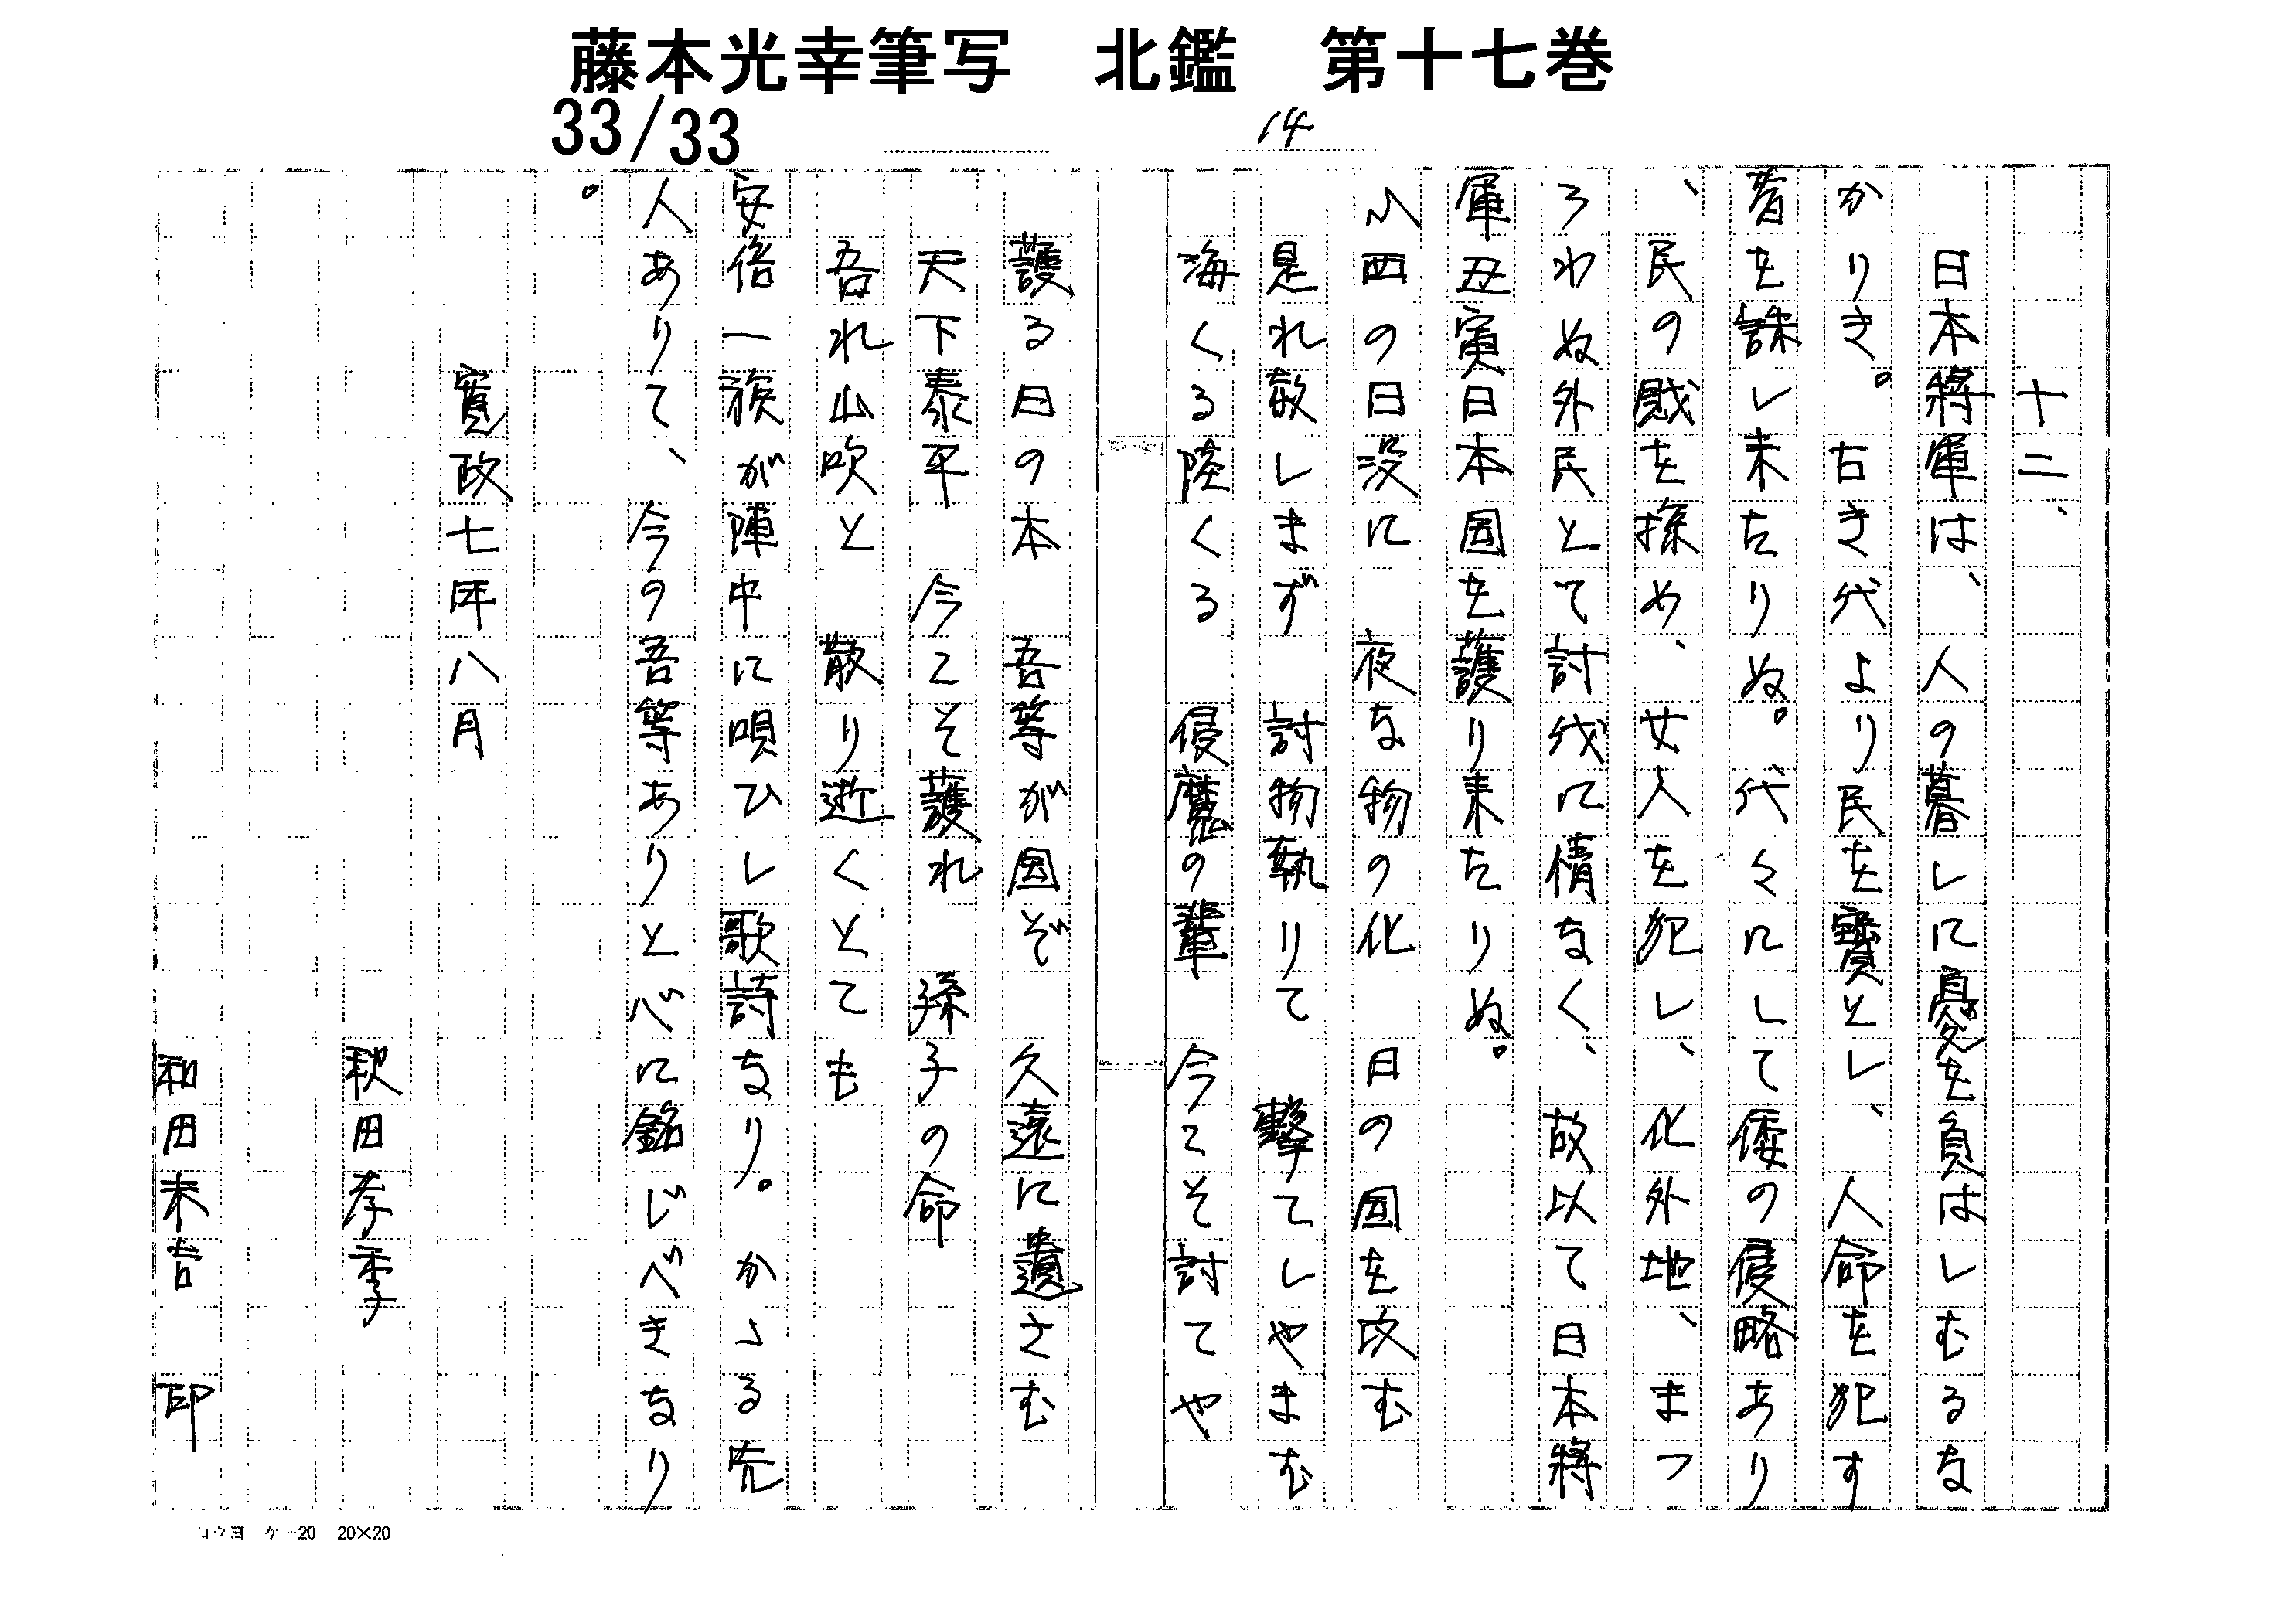 藤本光幸筆写　北鑑　第十七巻
33/33
14
十二、
日本將軍は、人の暮しに憂を負はしむるな
かりき。古き代より民を寶とし、人命を犯す
者を誅し来たりぬ。代々にして倭の侵略あり
、民の賊を探め、女人を犯し、化外地、まつ
ろわぬ外民とて討伐に情なく、故以て日本將
軍丑寅日本国を護り来たりぬ。
山西の日没に　夜な物の化　日の国を攻む
是れ敵しまず　討物執りて　撃てしやまむ
海くる陸くる　侵魔の輩　今こそ討てや
護る日の本　吾等が国ぞ　久遠に遺さむ
天下泰平　今こそ護れ　孫子の命
吾れ山吹と　散り逝くとても
安倍一族が陣中に唄ひし歌詩なり。かゝる先
人ありて、今の吾等ありと心に銘じべきなり
。
寛政七年八月
秋田孝季
和田末吉　印
コクヨ　ケー20　20×20